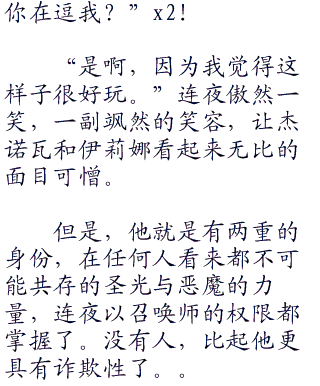 你在逗我？”x2！
“是啊，因为我觉得这
样子很好玩。”连夜傲然一
笑，一副飒然的笑容，让杰
诺瓦和伊莉娜看起来无比的
面目可憎。
但是，他就是有两重的
身份，在任何人看来都不可
能共存的圣光与恶魔的力
量，连夜以召唤师的权限都
掌握了。没有人，比起他更
具有诈欺性了。。